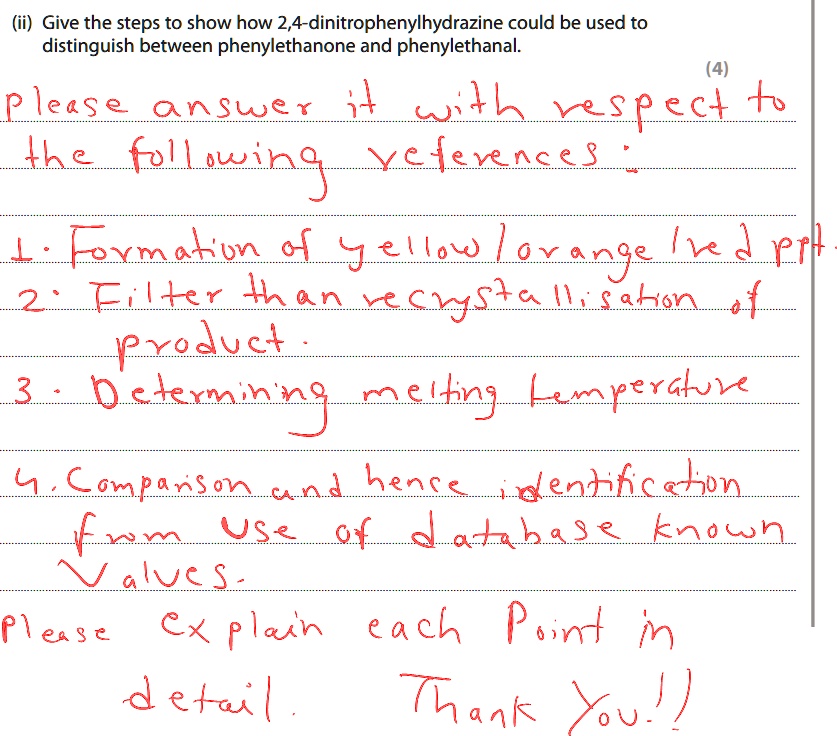 (ii) Give the steps to show how 2,4-dinitrophenylhydrazine could be used to
distinguish between phenylethanone and phenylethanal.
(4)
Please answer it with respect to
the following references:
1. Formation of yellow/orange/red ppt.
2. Filter than recrystallisation of
product.
3. Determining melting temperature
4. Comparison and hence identification
from use of database known
values.
Please explain each Point in
detail. Thank You!!